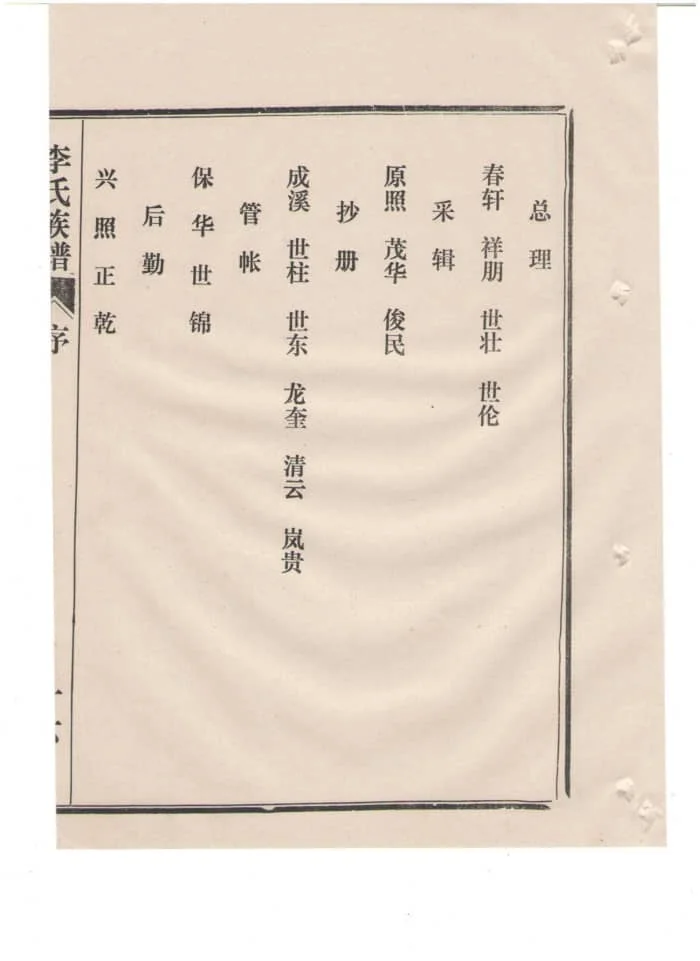 总理
春轩 祥朋 世壮 世伦
采辑
原照 茂华 俊民
抄册
成溪 世柱 世东 龙奎 清云 岚贵
管帐
保华世锦
后勤
兴照正乾
李氏族谱 序